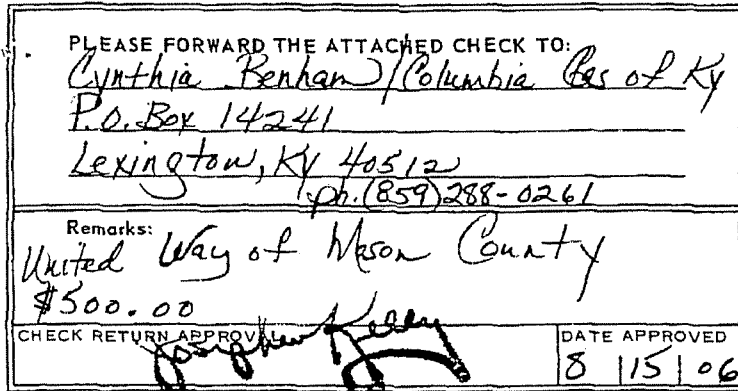 PLEASE FORWARD THE ATTACHED CHECK TO:
Cynthia Benham/Columbia Gas of Ky
P.O. Box 14241
Lexington, Ky 40512
ph. (859) 288-0261
Remarks:
United Way of Mason County
$500.00
CHECK RETURN APPROVAL
Kelly
DATE APPROVED
8 | 15 | 06